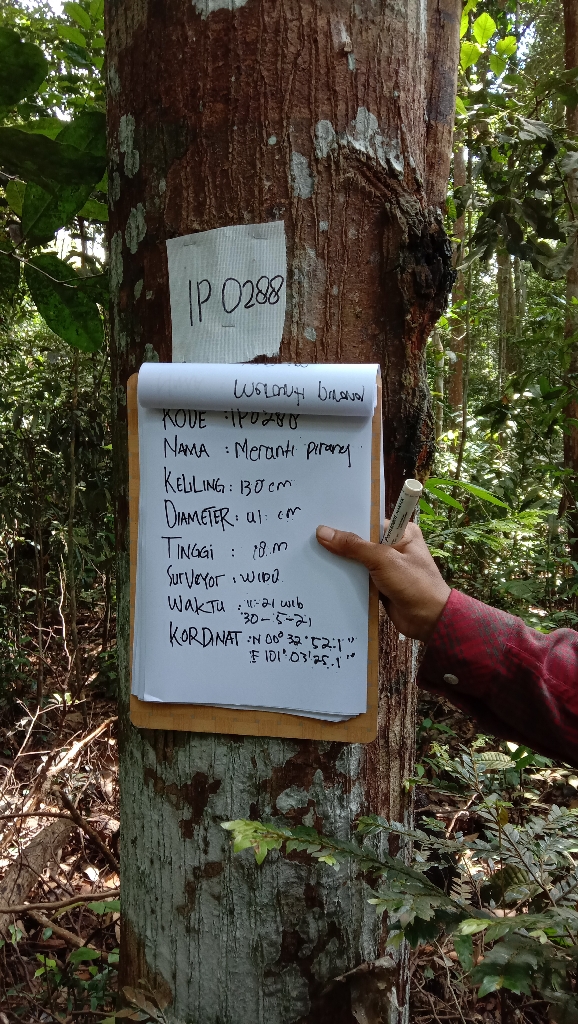 IP0288
KODE : IP0288
NAMA : Meranti pirang
KELILING : 130 cm
DIAMETER : 41 cm
TINGGI : 18 m
SURVEYOR : WIDO
WAKTU : 11-21 WIB
30-5-21
KORDINAT : N 00° 32' 52.1"
E 101° 03' 25.1"